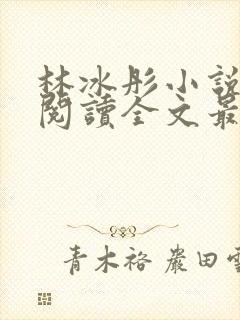 林冰彤小說
閱讀全文最
青木裕 嚴田雪